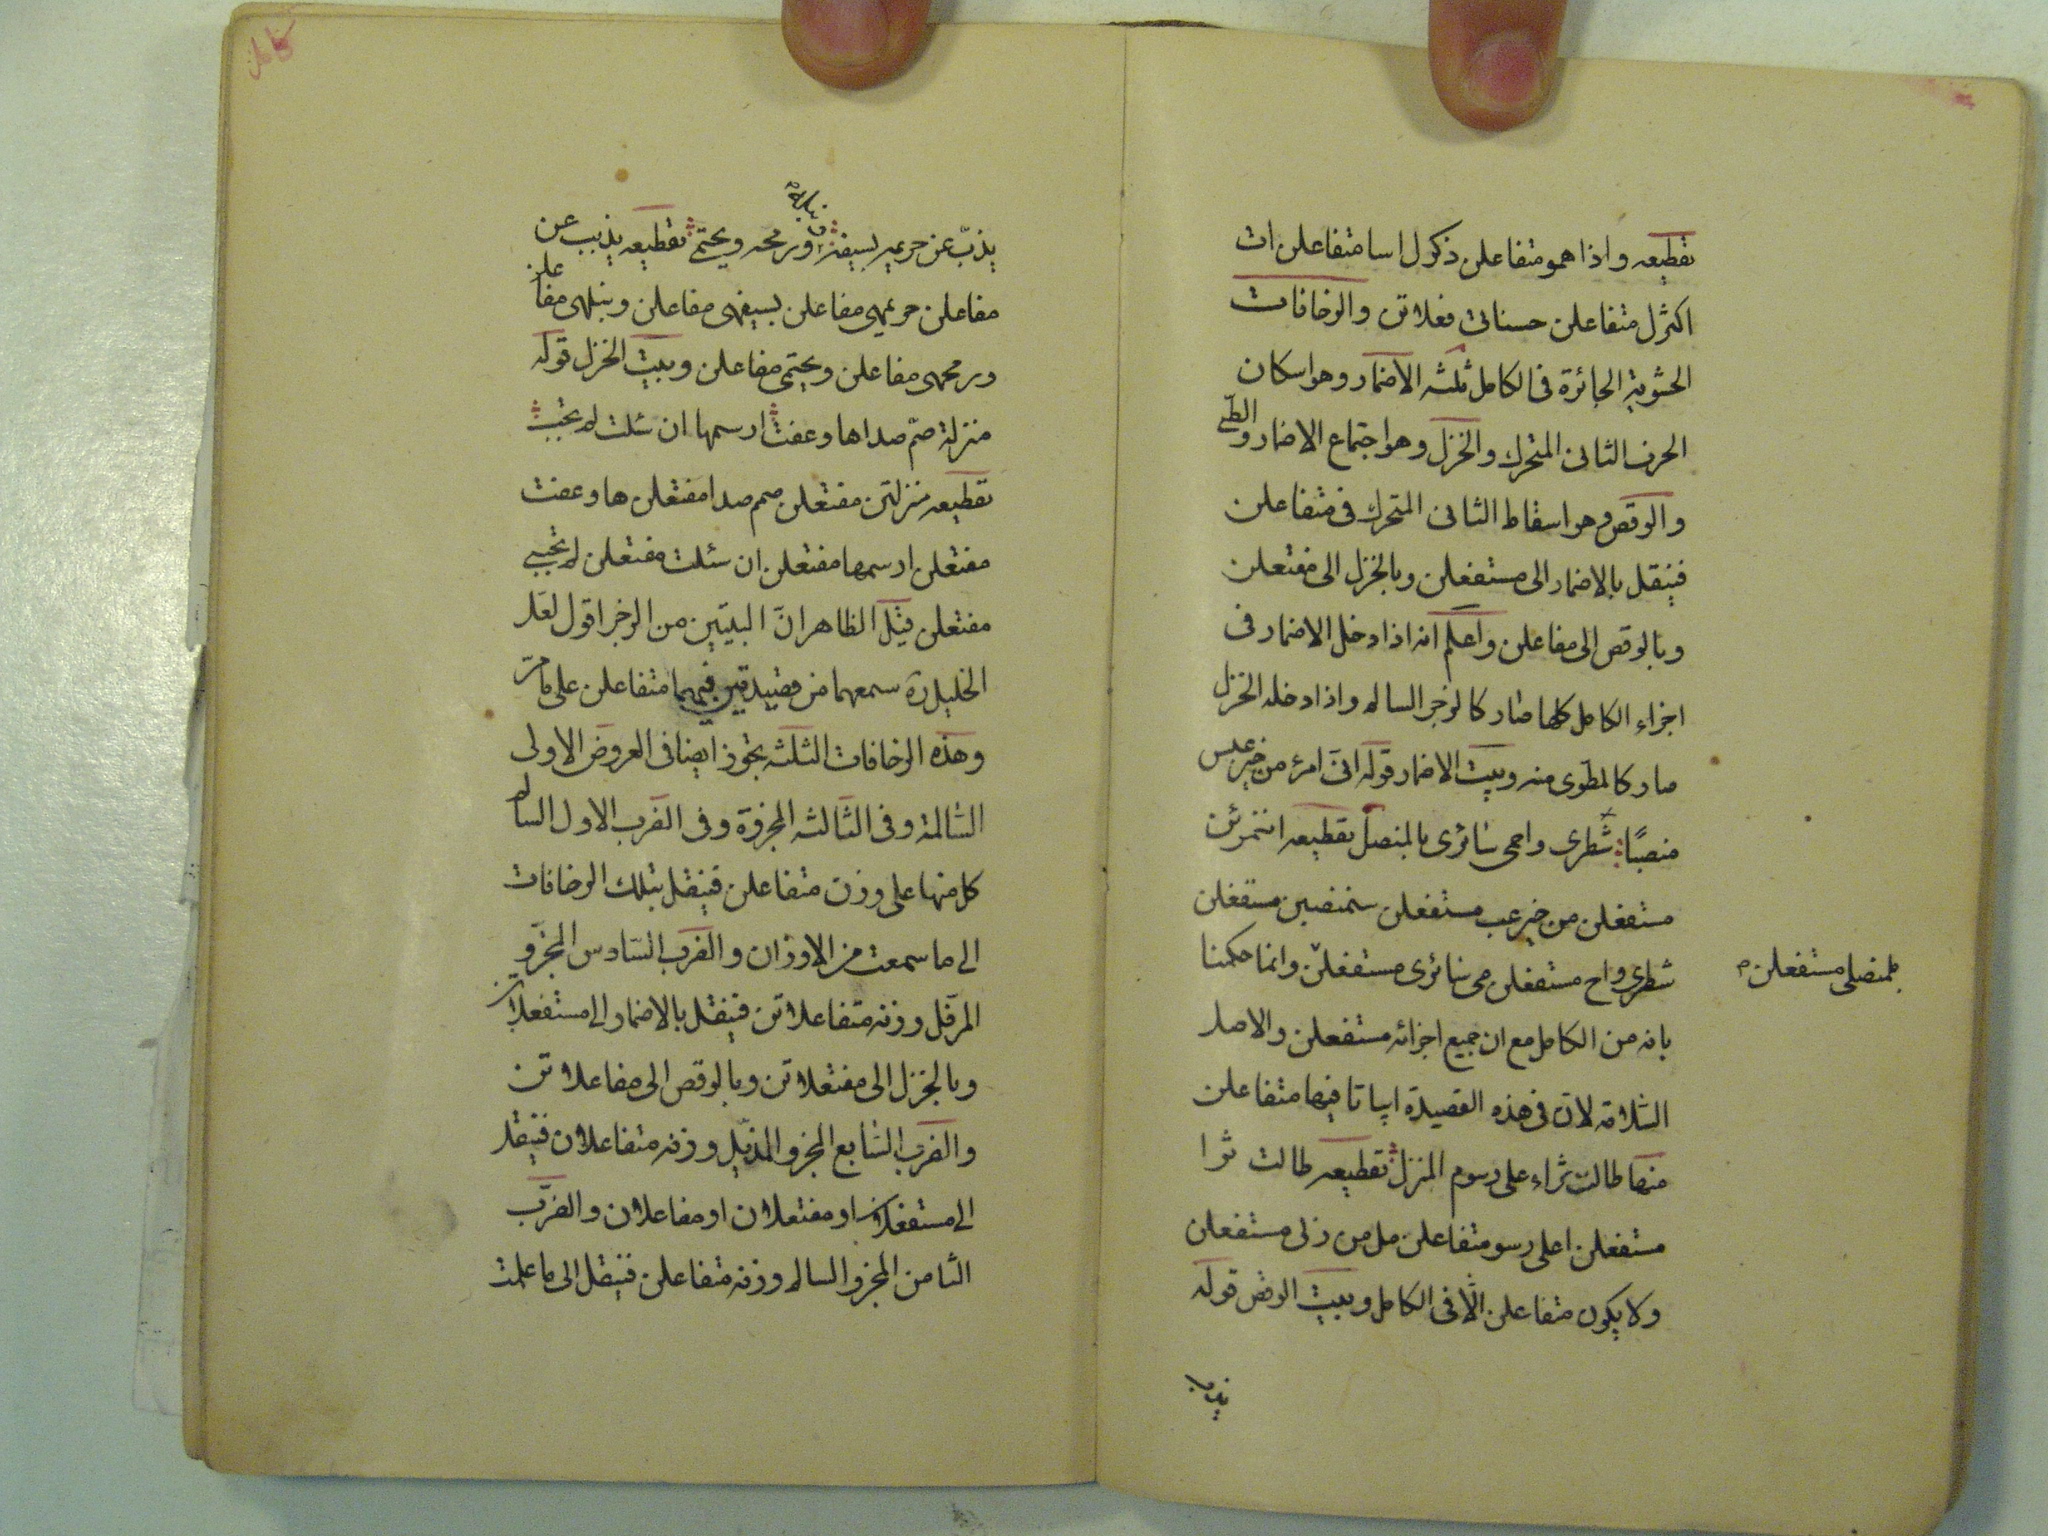 تقطيعه واذا همو متفاعلن ذكرل اسا متفاعلن ات
اكثرل متفاعلن حسناتى فعلاتن والزحافات
الحشوية الجائزة فى الكامل ثلثه الاضمار وهو اسكان
الحرف الثانى المتحرك والخزل وهو اجتماع الاضمار والطى
والوقص وهو اسقاط الثانى المتحرك فى متفاعلن
فينقل بالاضمار الى مستفعلن وبالخزل الى مفتعلن
وبالوقص الى مفاعلن واعلم انه اذا دخل الاضمار فى
اجزاء الكامل كلها صار كالرجز السالم واذا دخله الخزل
صار كالمطوى منه وبيت الاضمار قوله انى امرء من خير عبس
منصبًا شطرى واحمى سائرى بالمنصل تقطيعه اننمرئن
مستفعلن من خير عب مستفعلن سنمنصبن مستفعلن
شطرى واح مستفعلن مى سائرى مستفعلن وانما حكمنا
بلمنصلى مستفعلن
بانه من الكامل مع ان جميع اجزائه مستفعلن والاصل
السّلامة لان فى هذه القصيدة ابياتا فيها متفاعلن
منها طالت ثراء على رسوم المنزل تقطيعه طالت ثرا
مستفعلن اعلى رسو متفاعلن مل من زلى مستفعلن
ولا يكون متفاعلن الّا فى الكامل وبيت الوقص قوله
يذب
كامل
يذبّ عن حريمه بسيفه ونبله ورمحه ويحتمى تقطيعه يذبب عن
مفاعلن حريمهى مفاعلن بسيفهى مفاعلن ونبلهى مفاعلن
ورمحهى مفاعلن ويحتمى مفاعلن وبيت الخزل قوله
منزلة صمّ صداها وعفت ارسمها ان سئلت لم تجب
تقطيعه منزلتن مفتعلن صمم صدا مفتعلن ها وعفت
مفتعلن ارسمها مفتعلن ان سئلت مفتعلن لم تجبى
مفتعلن قيل الظاهر انّ البيتين من الرجز اقول لعل
الخليل ره سمعهما من قصيدتين فيهما متفاعلن على ما مرّ
وهذه الزحافات الثلثه تجوز ايضا فى العروض الاولى
السّالمة وفى الثالثه المجزوة وفى الضرب الاول السالم
كل منها على وزن متفاعلن فينقل بتلك الزحافات
الى ما سمعت من الاوزان والضرب السّادس المجزوّ
المرفّل وزنه متفاعلاتن فينقل بالاضمار الى مستفعلاتن
وبالخزل الى مفتعلاتن وبالوقص الى مفاعلاتن
والضرب السّابع المجزو المذيّل وزنه متفاعلان فينقل
الى مستفعلان او مفتعلان او مفاعلان والضرب
الثامن المجزو السالم وزنه متفاعلن فينقل الى ما علمت